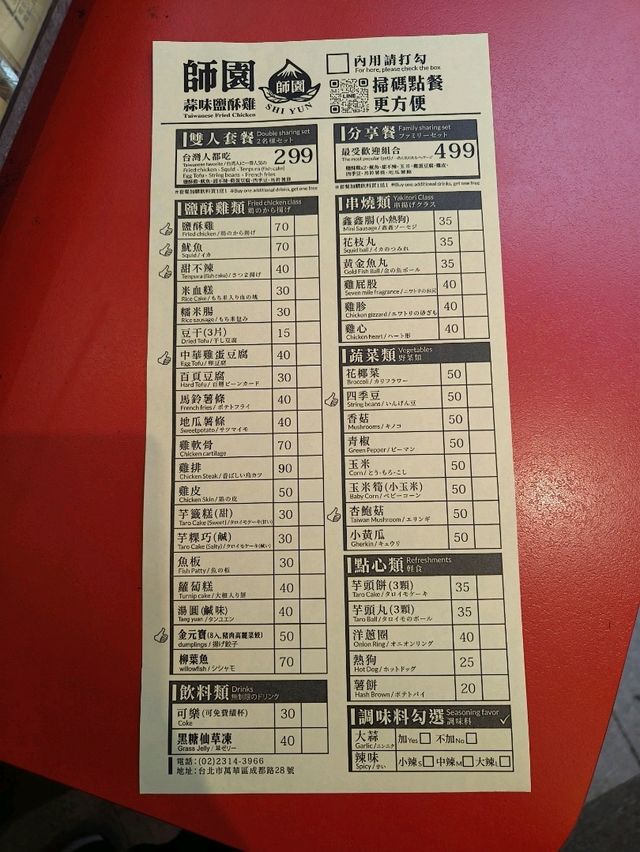 師園
蒜味鹽酥雞
Taiwanese Fried Chicken
師園
SHI YUN
內用請打勾
For here, please check the box
LINE
掃碼點餐
更方便
雙人套餐 Double sharing set
2名様セット
台灣人都吃 299
Fried chicken、Squid、Tempura (fish cake)
Egg Tofu、String beans、French fries
分享餐 Family sharing set
ファミリーセット
最受歡迎組合 499
鹽酥雞類 Fried chicken class
鶏のから揚げ
鹽酥雞 70
Fried chicken / 鶏のから揚げ
魷魚 70
Squid / イカ
甜不辣 40
Tempura (fish cake) / さつま揚げ
米血糕 30
Rice Cake / もち米入り血の塊
糯米腸 30
Rice sausage / もち米包み
豆干(3片) 15
Dried Tofu / 干し豆腐
中華雞蛋豆腐 40
Egg Tofu / 卵豆腐
百頁豆腐 30
Hard Tofu / 百頁ビーンカード
馬鈴薯條 40
French fries / ポテトフライ
地瓜薯條 40
Sweetpotato / サツマイモ
雞軟骨 70
Chicken cartilage
雞排 90
Chicken Steak / 香ばしい鳥カツ
雞皮 50
Chicken Skin / 鶏の皮
芋籤糕(甜) 30
Taro Cake (Sweet) / タロイモケーキ(甘い)
芋粿巧(鹹) 30
Taro Cake (Salty) / タロイモケーキ(鹹い)
魚板 30
Fish Patty / 魚の板
蘿蔔糕 40
Turnip cake / 大根入り餅
湯圓(鹹味) 40
Tang yuan / タンユエン
金元寶(8入, 豬肉高麗菜餃) 50
dumplings / 揚げ餃子
柳葉魚 70
willowfish / シシャモ
飲料類 Drinks
無制限のドリンク
可樂(可免費續杯) 30
Coke
黑糖仙草凍 40
Grass Jelly / 草ゼリー
電話:(02)2314-3966
地址:台北市萬華區成都路28號
串燒類 Yakitori Class
串揚げクラス
鑫鑫腸(小熱狗) 35
Mini Sausage / 鑫鑫ソーセジ
花枝丸 35
Squid ball / イカのつみれ
黃金魚丸 35
Gold Fish Ball / 金の魚ボール
雞屁股 40
Seven mile fragrance / ニワトリのお尻
雞胗 40
Chicken gizzard / ニワトリの砂ぎも
雞心 40
Chicken heart / ハート形
蔬菜類 Vegetables
野菜類
花椰菜 50
Broccoli / カリフラワー
四季豆 50
String beans / いんげん豆
香菇 50
Mushrooms / キノコ
青椒 50
Green Pepper / ピーマン
玉米 50
Corn / とう・もろ・こし
玉米筍(小玉米) 50
Baby Corn / ベビーコーン
杏鮑菇 50
Taiwan Mushroom / エリンギ
小黃瓜 50
Gherkin / キュウリ
點心類 Refreshments
軽食
芋頭餅(3顆) 35
Taro Cake / タロイモケーキ
芋頭丸(3顆) 35
Taro Ball / タロイモのボール
洋蔥圈 40
Onion Ring / オニオンリング
熱狗 25
Hot Dog / ホットドッグ
薯餅 20
Hash Brown / ポテトパイ
調味料勾選 Seasoning favor
調味料 ✓
大蒜 加Yes 不加No
Garlic / ニンニク
辣味 小辣S 中辣M 大辣L
Spicy / 辛い